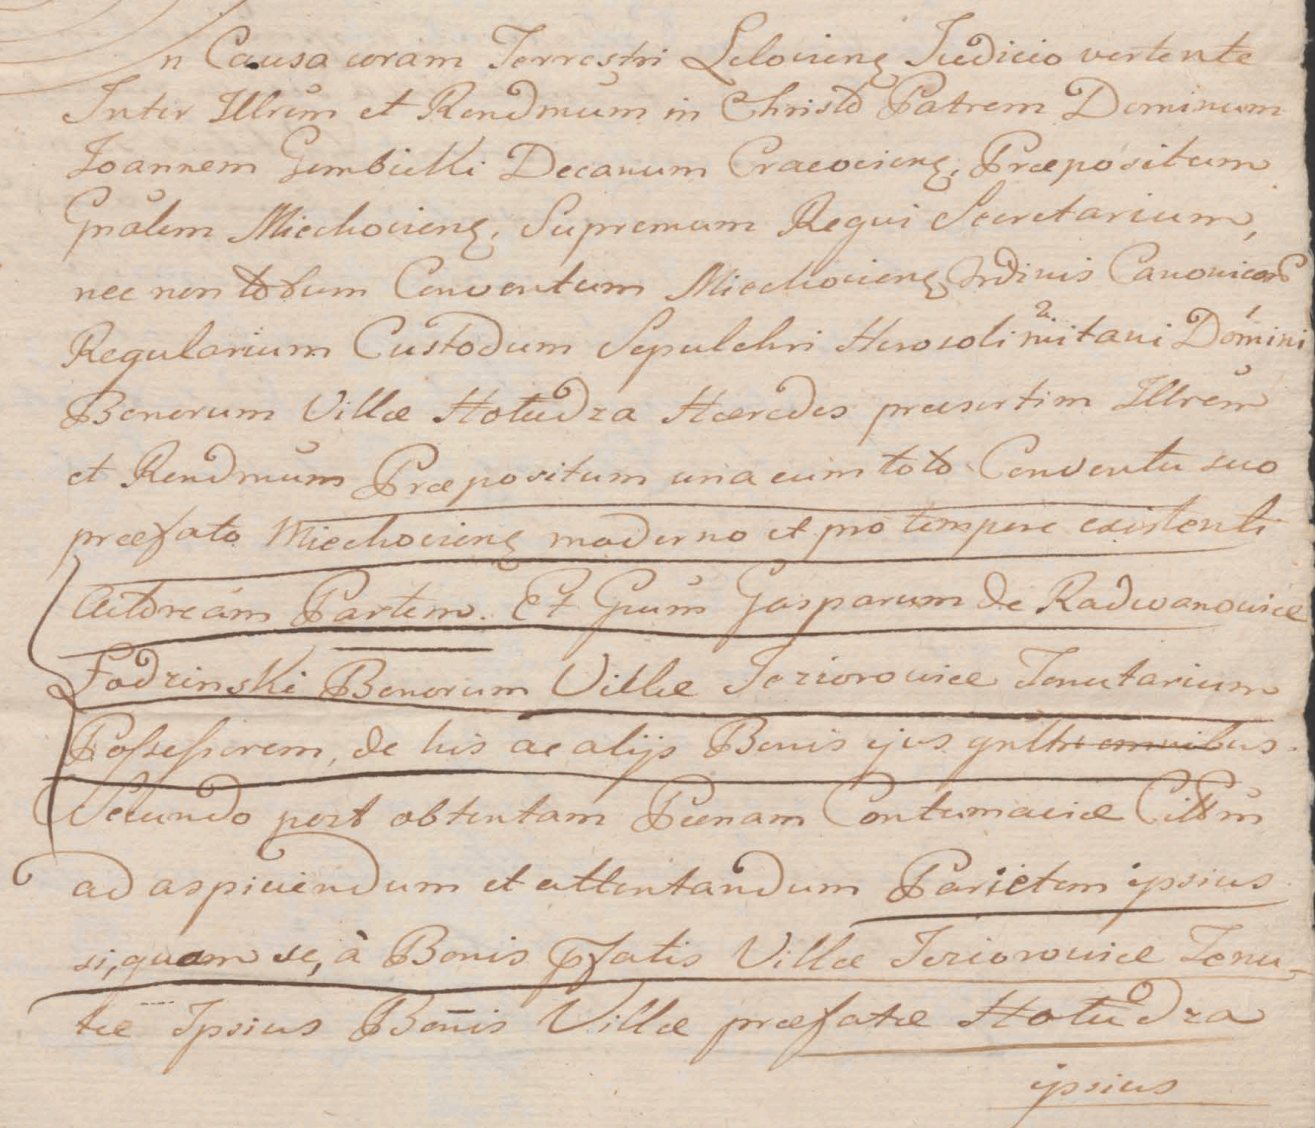 n Causa coram Terrestri Leloviens Judicio vertente
Inter Illrem et Rendmum in Christo Patrem Dominum
Joannem Gembicki Decanum Cracoviens, Præpositum
Gnalem Miechoviens, Supremum Regni Secretarium,
nec non totum Conventum Miechoviens Ordinis Canonicor
Regularium Custodum Sepulchri Hierosolimitani Domini
Bonorum Villæ Hołudza Hæredes præsertim Illrem
et Rendmum Præpositum una cum toto Conventu suo
præfato Miechoviens moderno et pro tempore existenti
Actoream Partem. Et Gnum Gasparum de Radwanowice
Łodzinski Bonorum Villæ Jeziorowice Tenutarium
Possessorem, de his ac alijs Bonis ejus gnltr omnibus.
Secundo post obtentam Pœnam Contumaciæ Cittum
ad aspiciendum et attentandum Parietem ipsius
si, quam se, à Bonis pfatis Villæ Jeziorowice Tenu-
tæ Ipsius Bonis Villæ præfatæ Hołudza
ipsius